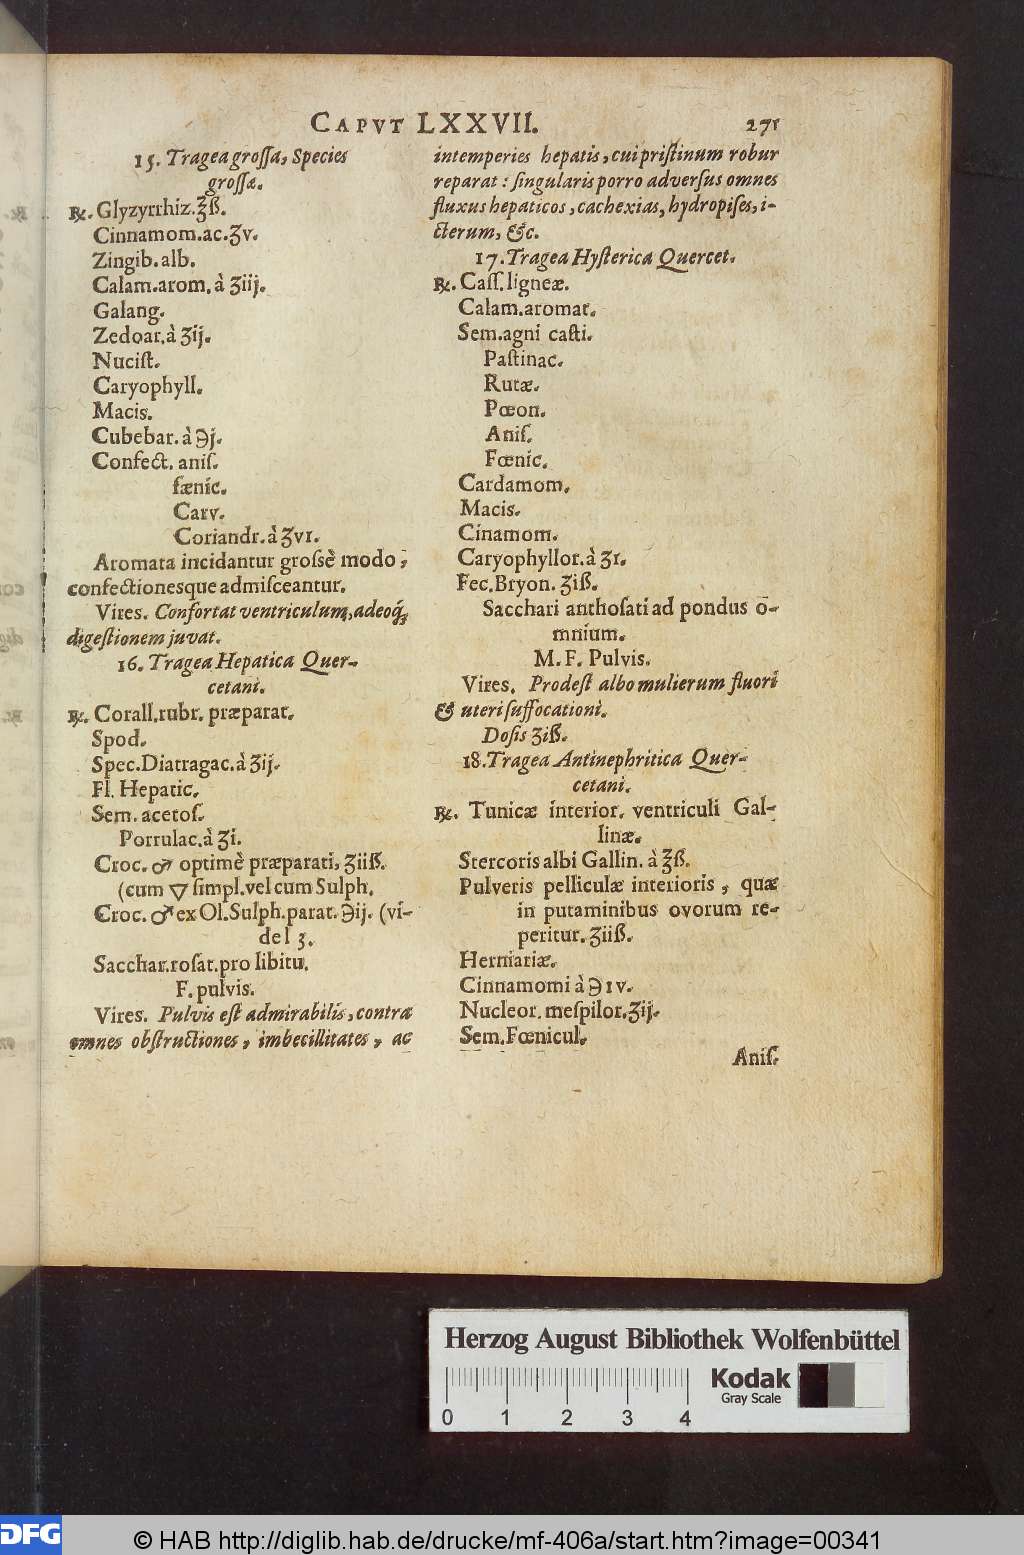 CAPVT LXXVII. 271
15. Tragea groſſa, Species
groſſæ.
℞. Glyzyrrhiz. ℥ß.
Cinnamom. ac. ʒv.
Zingib. alb.
Calam. arom. à ʒiij.
Galang.
Zedoar. à ʒij.
Nuciſt.
Caryophyll.
Macis.
Cubebar. à ℈j.
Confect. aniſ.
fænic.
Carv.
Coriandr. à ʒvı.
Aromata incidantur groſsè modo,
confectionesque admiſceantur.
Vires. Confortat ventriculum, adeoq́;
digeſtionem juvat.
16. Tragea Hepatica Quer-
cetani.
℞. Corall. rubr. præparat.
Spod.
Spec. Diatragac. à ʒij.
Fl. Hepatic.
Sem. acetoſ.
Porrulac. à ʒi.
Croc. ♂ optimè præparati, ʒiiß.
(cum 🜄 ſimpl. vel cum Sulph.
Croc. ♂ ex Ol. Sulph. parat. ℈ij. (vi-
de l 3.
Sacchar. roſat. pro libitu.
F. pulvis.
Vires. Pulvis eſt admirabilis, contra
omnes obſtructiones, imbecillitates, ac
intemperies hepatis, cui priſtinum robur
reparat: ſingularis porro adverſus omnes
fluxus hepaticos, cachexias, hydropiſes, i-
cterum, &c.
17. Tragea Hyſterica Quercet.
℞. Caſſ. ligneæ.
Calam. aromat.
Sem. agni caſti.
Paſtinac.
Rutæ.
Pœon.
Aniſ.
Fœnic.
Cardamom.
Macis.
Cinamom.
Caryophyllor. à ʒı.
Fec. Bryon. ʒiß.
Sacchari anthoſati ad pondus o-
mnium.
M. F. Pulvis.
Vires. Prodeſt albo mulierum fluori
& uteri ſuffocationi.
Doſis ʒiß.
18. Tragea Antinephritica Quer-
cetani.
℞. Tunicæ interior. ventriculi Gal-
linæ.
Stercoris albi Gallin. à ℥ß.
Pulveris pelliculæ interioris, quæ
in putaminibus ovorum re-
peritur. ʒiiß.
Herniariæ.
Cinnamomi à ℈ıv.
Nucleor. meſpilor. ʒij.
Sem. Fœnicul.
Aniſ.
Herzog August Bibliothek Wolfenbüttel
Kodak
Gray Scale
0 1 2 3 4
DFG
© HAB http://diglib.hab.de/drucke/mf-406a/start.htm?image=00341